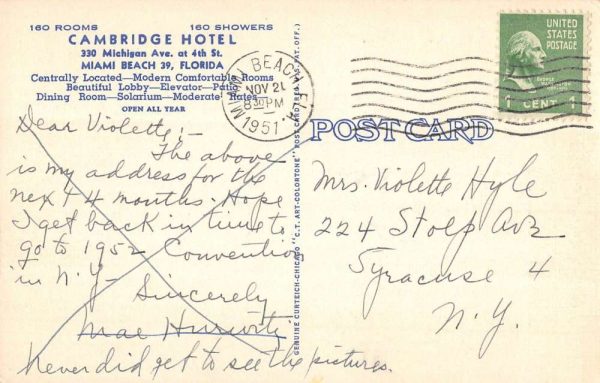 160 ROOMS 160 SHOWERS
CAMBRIDGE HOTEL
330 Michigan Ave. at 4th St.
MIAMI BEACH 39, FLORIDA
Centrally Located—Modern Comfortable Rooms
Beautiful Lobby—Elevator—Patio
Dining Room—Solarium—Moderate Rates
OPEN ALL YEAR
Dear Violette:-
The above
is my address for the
next 4 months. Hope
I get back in time to
go to 1952 Convention
in N.Y-
Sincerely
Mae Hurwitz
Never did get to see the pictures.
GENUINE CURTEICH-CHICAGO "C.T. ART-COLORTONE" POST CARD (REG. U.S. PAT. OFF.)
MIAMI BEACH
NOV 21
8 30 PM
1951
UNITED
STATES
POSTAGE
GEORGE
WASHINGTON
1 CENT 1
POST CARD
Mrs. Violette Hyle
224 Stolp Ave
Syracuse 4
N.Y.